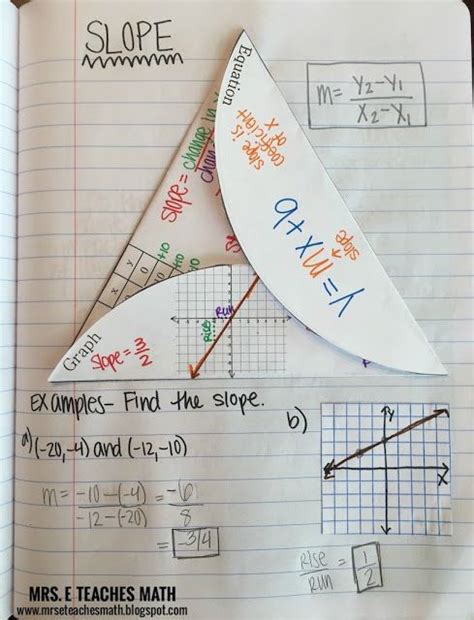 SLOPE
m = Y₂-Y₁
X₂-X₁
Equation
slope is
coefficient
of x
y=mx+b
slope
slope = change in
+10
+10
x
0
0
Graph
slope = 3/2
Rise
Run
Examples- Find the slope.
a) (-20,-4) and (-12,-10)
m = -10-(-4) = -6
-12-(-20) 8
= -3/4
b)
Y
X
Rise = 1
Run 2
MRS. E TEACHES MATH
www.mrseteachesmath.blogspot.com